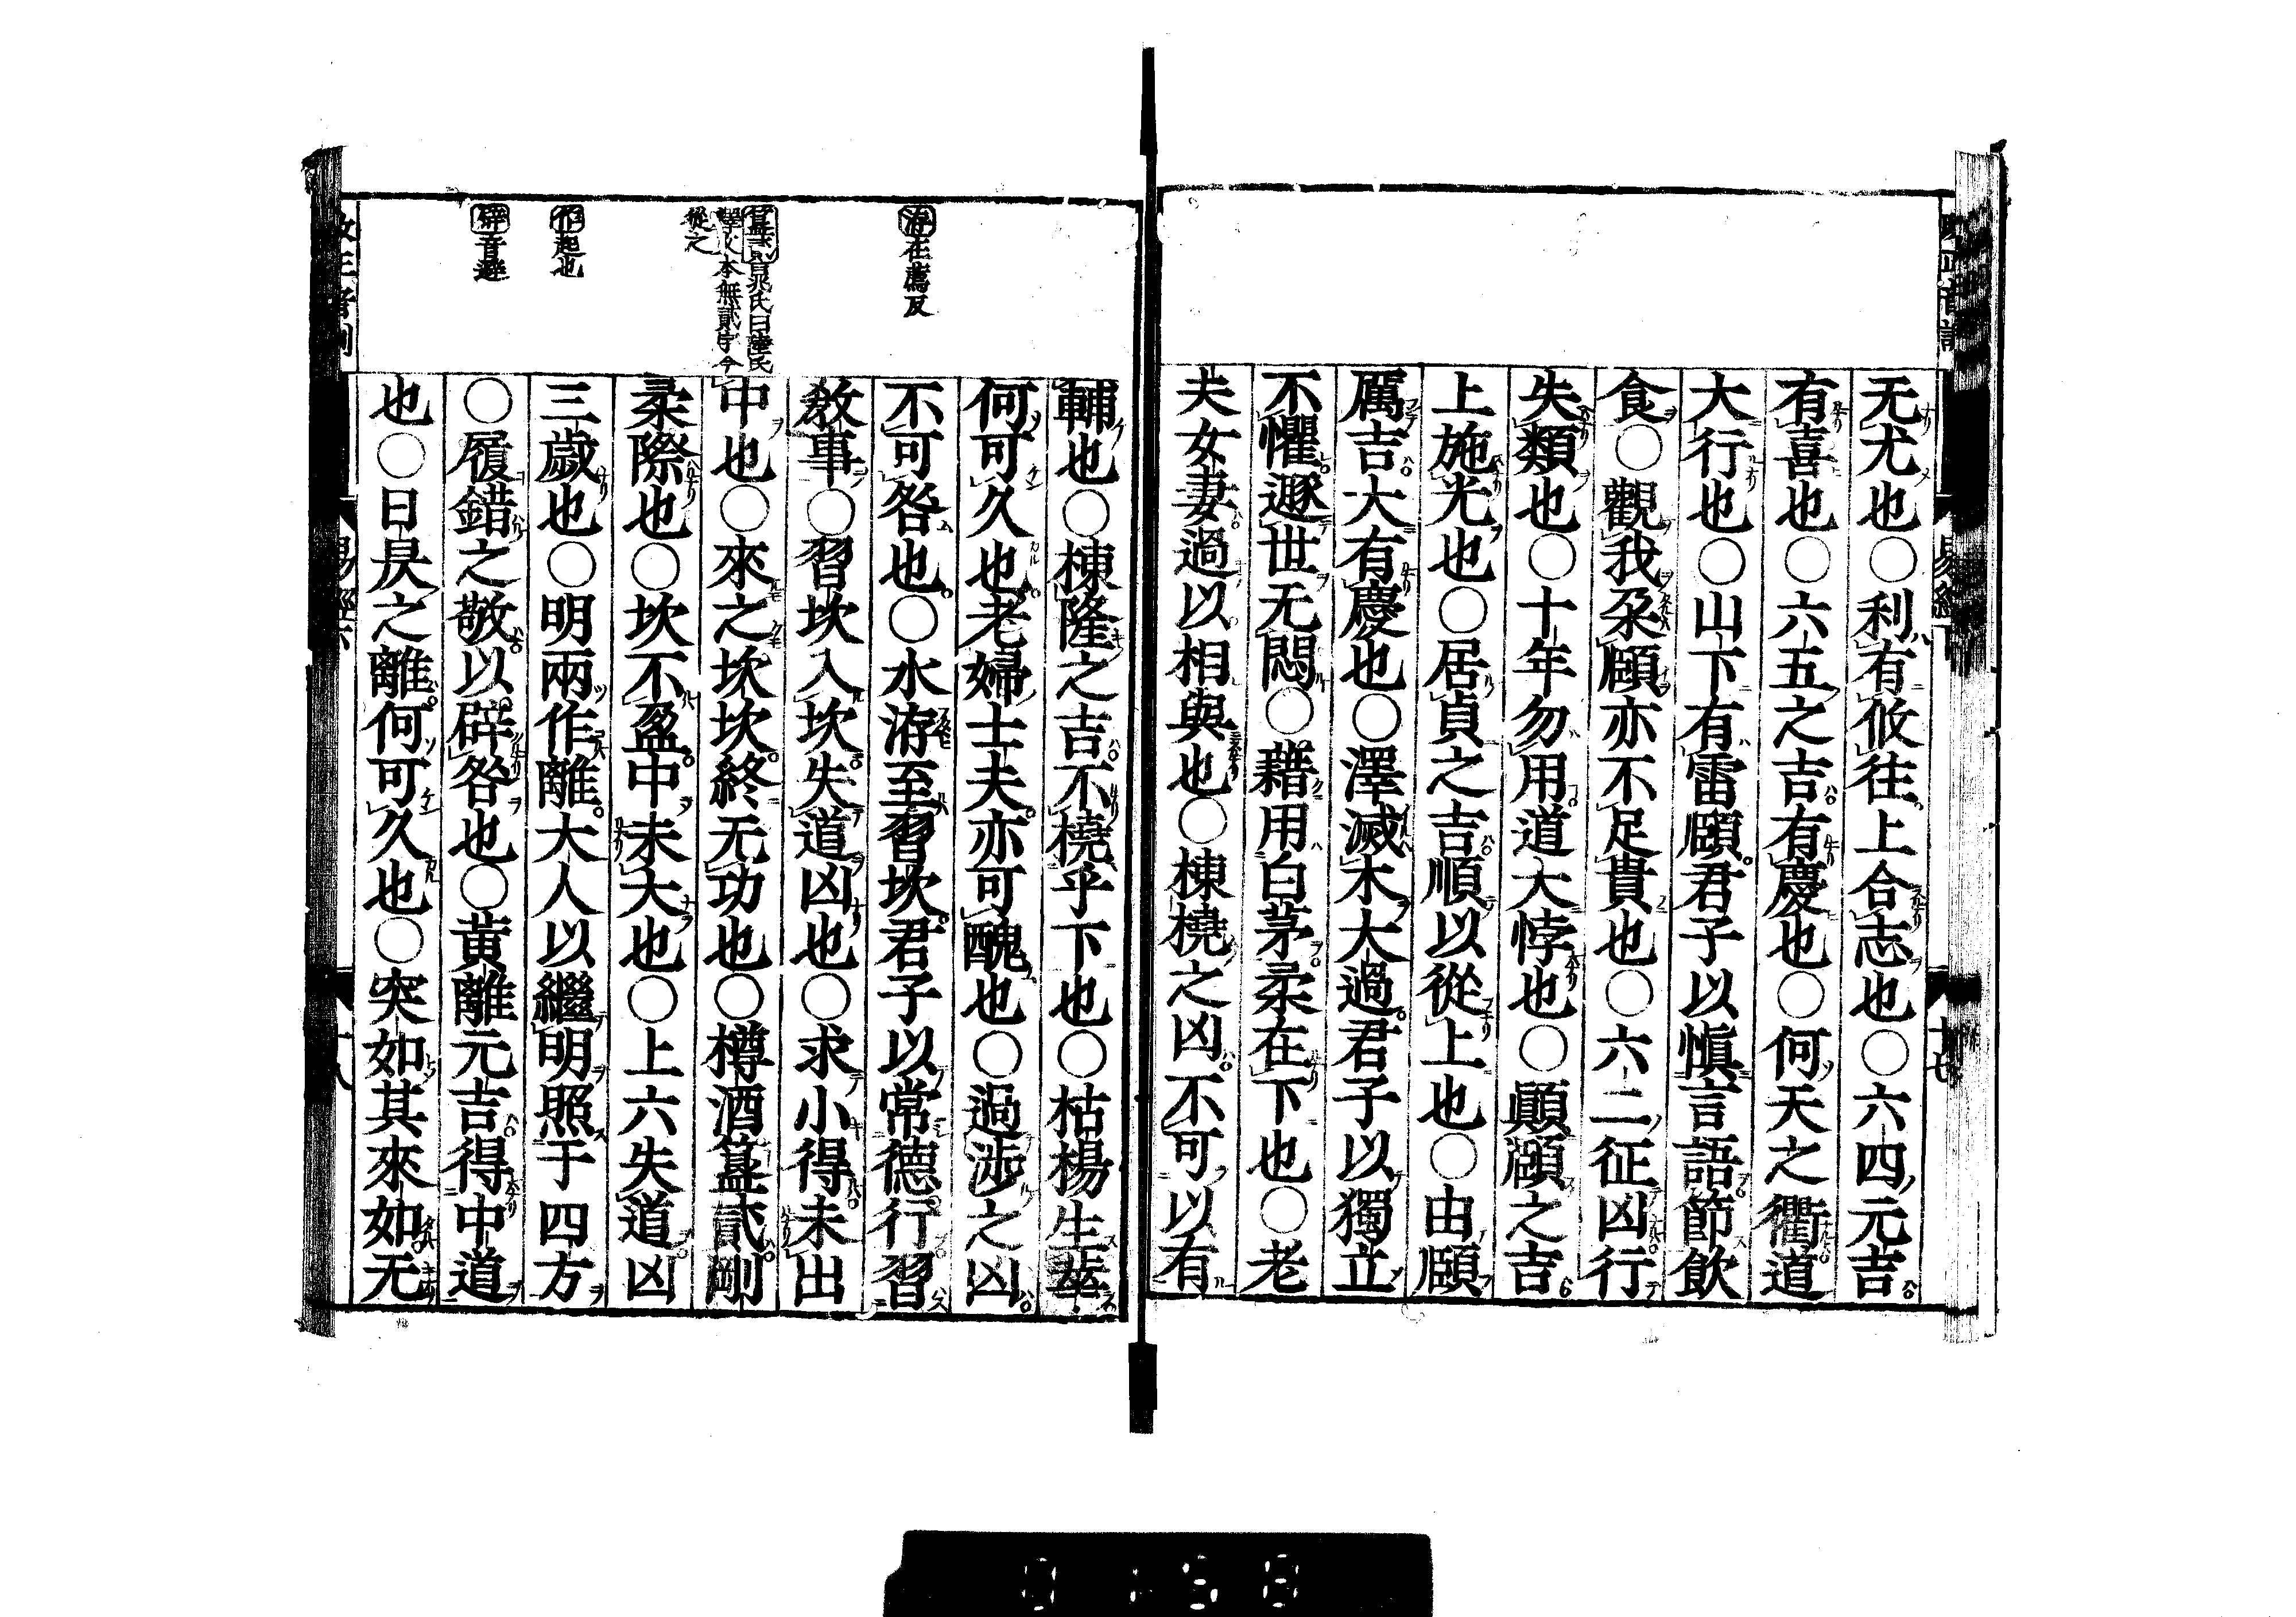 无尤也○利有攸往上合志也○六四元吉
有喜也○六五之吉有慶也○何天之衢道
大行也○山下有雷頤君子以慎言語節飲
食○觀我朶頤亦不足貴也○六二征凶行
失類也○十年勿用道大悖也○顚頤之吉
上施光也○居貞之吉順以從上也○由頤
厲吉大有慶也○澤滅木大過君子以獨立
不懼遯世无悶○藉用白茅柔在下也○老
夫女妻過以相與也○棟橈之凶不可以有
輔也○棟隆之吉不橈乎下也○枯楊生華
何可久也老婦士夫亦可醜也○過涉之凶
不可咎也○水洊至習坎君子以常德行習
敎事○習坎入坎失道凶也○求小得未出
中也○來之坎坎終无功也○樽酒簋貳剛
柔際也○坎不盈中未大也○上六失道凶
三歲也○明兩作離大人以繼明照于四方
○履錯之敬以辟咎也○黃離元吉得中道
也○日昃之離何可久也○突如其來如无
洊在薦反
簋貳晁氏曰陸氏
釋文本無貳字今
從之
作起也
辟音避
易經
十七
十八
0158